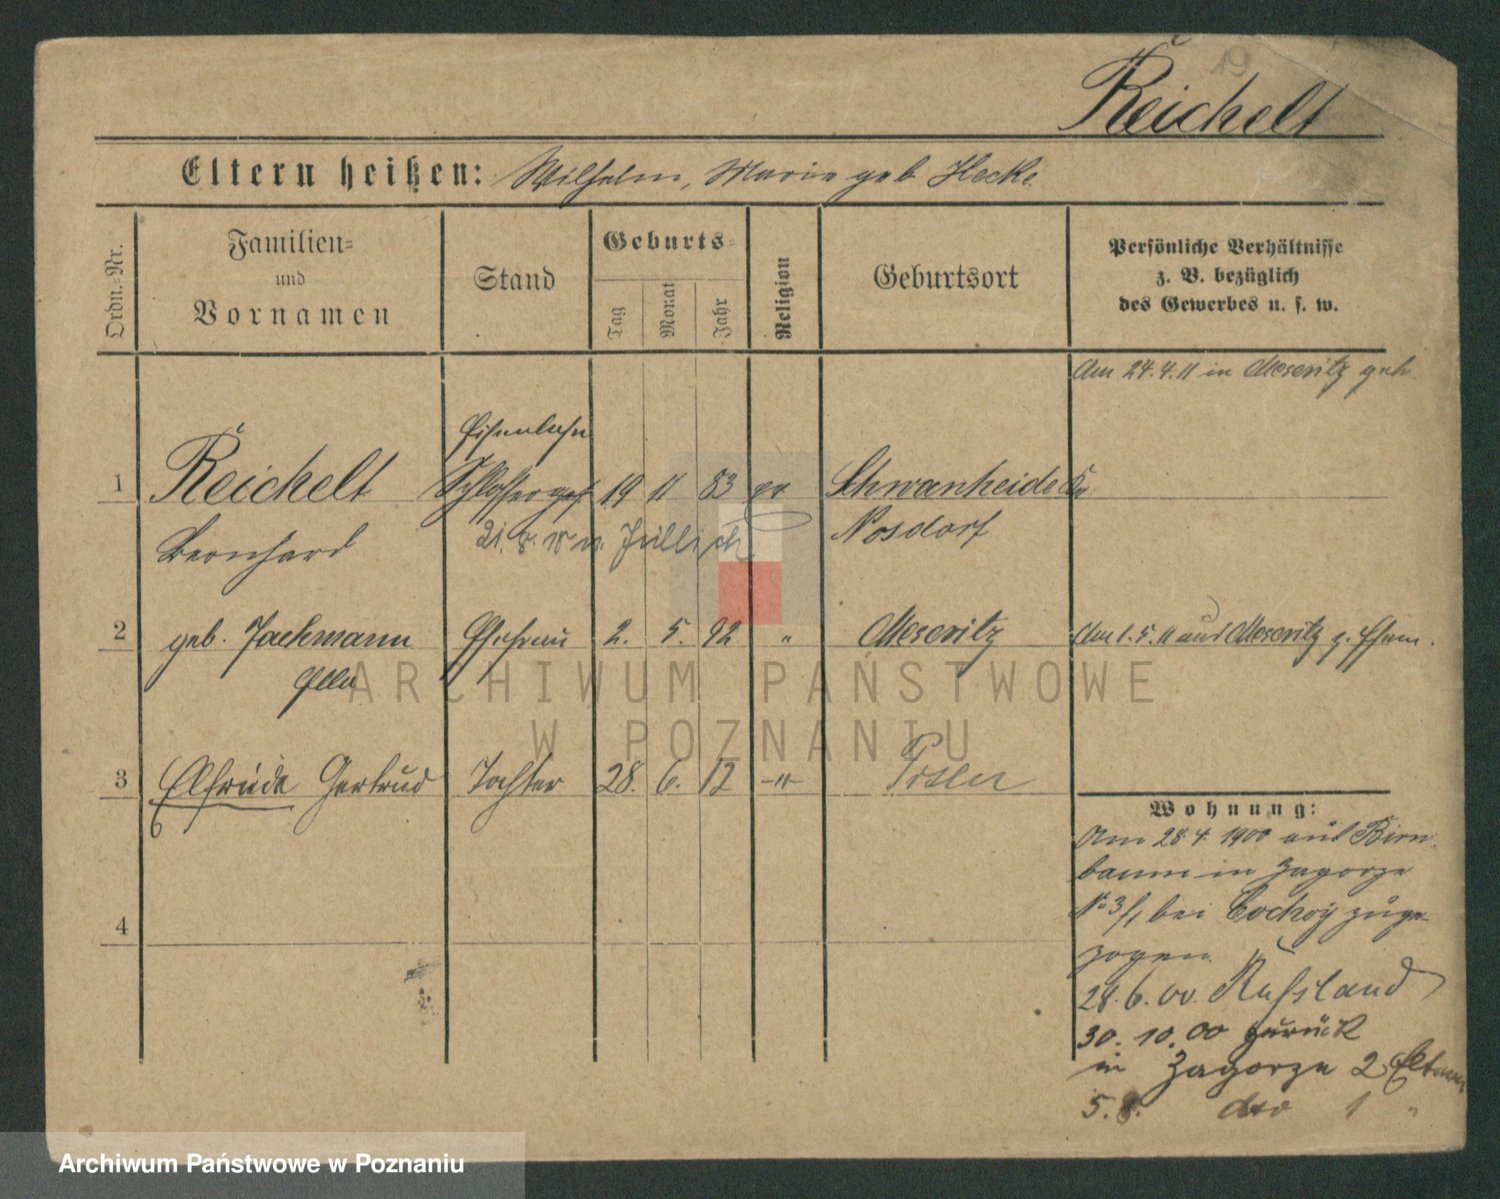 Reichelt
Eltern heißen: Wilhelm, Marie geb Hecke
Ordn.=Nr.
Familien=
und
Vornamen
Stand
Geburts=
Tag
Monat
Jahr
Religion
Geburtsort
Persönliche Verhältnisse
z. B. bezüglich
des Gewerbes u. s. w.
Am 24.4.11 in Meseritz geh.
Eisenbahn
1 Reichelt Schlosserges. 19 11 83 ev Schwanheide Kr
Bernhard 21. 8. Nosdorf
2 geb. Jackmann Ehefrau 2. 5. 92 " Meseritz Am 1.5.11 aus Meseritz z. Ehem.
Ella
3 Elfriede Gertrud Tochter 28. 6. 12 -"- Posen
4
Wohnung:
Am 28 4. 1900 aus Birn
baum in Zagorze
No 3/1 bei zuge-
zogen.
28. 6. 00. Russland
30. 10. 00 zurück
in Zagorze 2 Eltern
5. 8. dto 1 "
ARCHIWUM PAŃSTWOWE
W POZNANIU
Archiwum Państwowe w Poznaniu